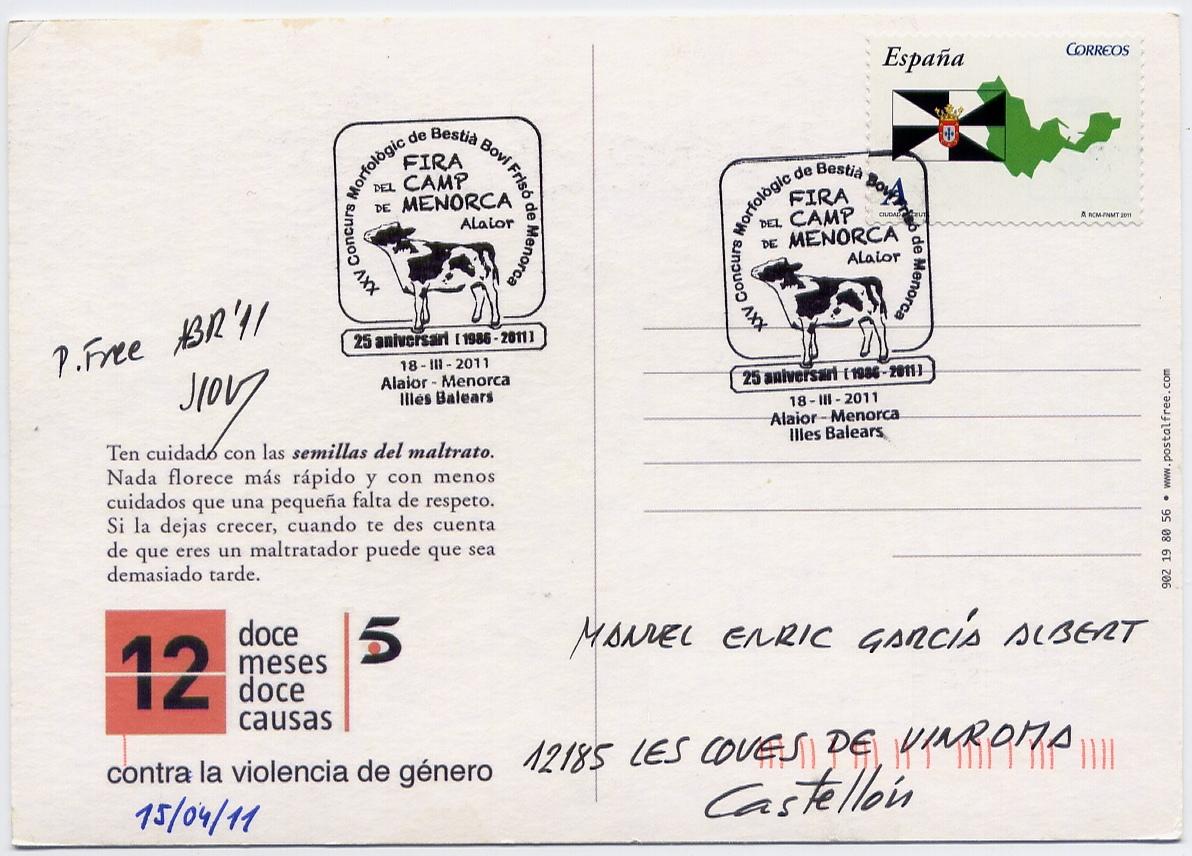 España
CORREOS
A
RCM-FNMT 2011
XXV Concurs Morfològic de Bestià Boví Frisó de Menorca
FIRA
DEL CAMP
DE MENORCA
Alaior
25 aniversari [1986-2011]
18-III-2011
Alaior - Menorca
Illes Balears
XXV Concurs Morfològic de Bestià Boví Frisó de Menorca
FIRA
DEL CAMP
DE MENORCA
Alaior
25 aniversari [1986-2011]
18-III-2011
Alaior - Menorca
Illes Balears
P. Free ABR'11
Ten cuidado con las semillas del maltrato.
Nada florece más rápido y con menos
cuidados que una pequeña falta de respeto.
Si la dejas crecer, cuando te des cuenta
de que eres un maltratador puede que sea
demasiado tarde.
12
doce
meses
doce
causas
5
contra la violencia de género
15/04/11
MANUEL ENRIC GARCÍA ALBERT
12185 LES COVES DE VINROMA
Castellón
902 19 80 56 • www.postalfree.com